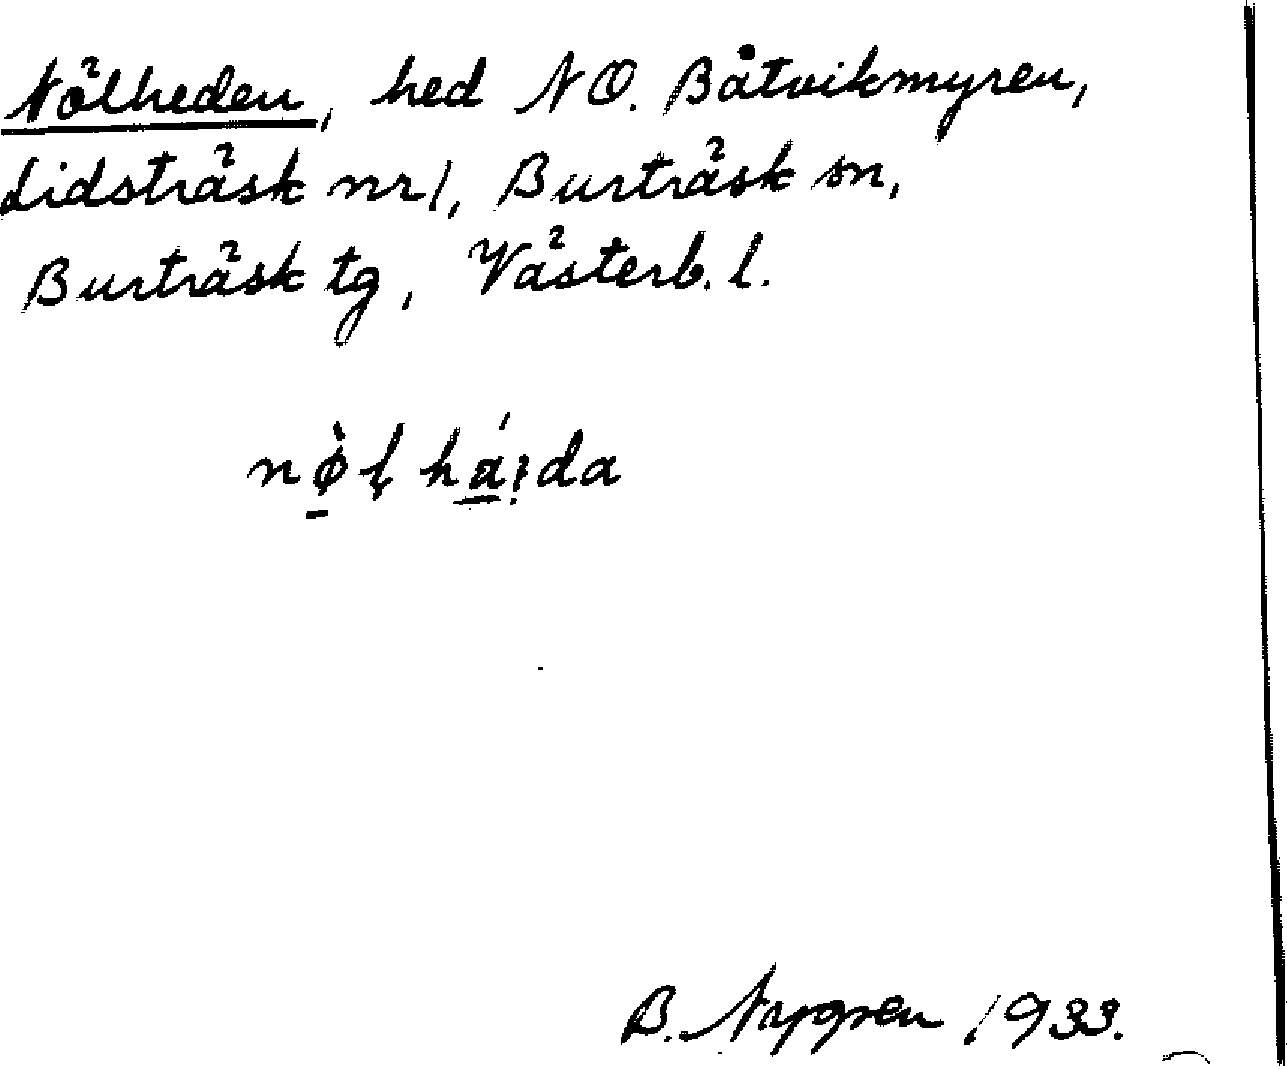 Nölheden, hed NO. Båtvikmyren,
Lidsträsk nr 1, Burträsk sn,
Burträsk tg, Västerb. l.
nø̠̀ɭ há̠i̭da
B. Nygren 1933.